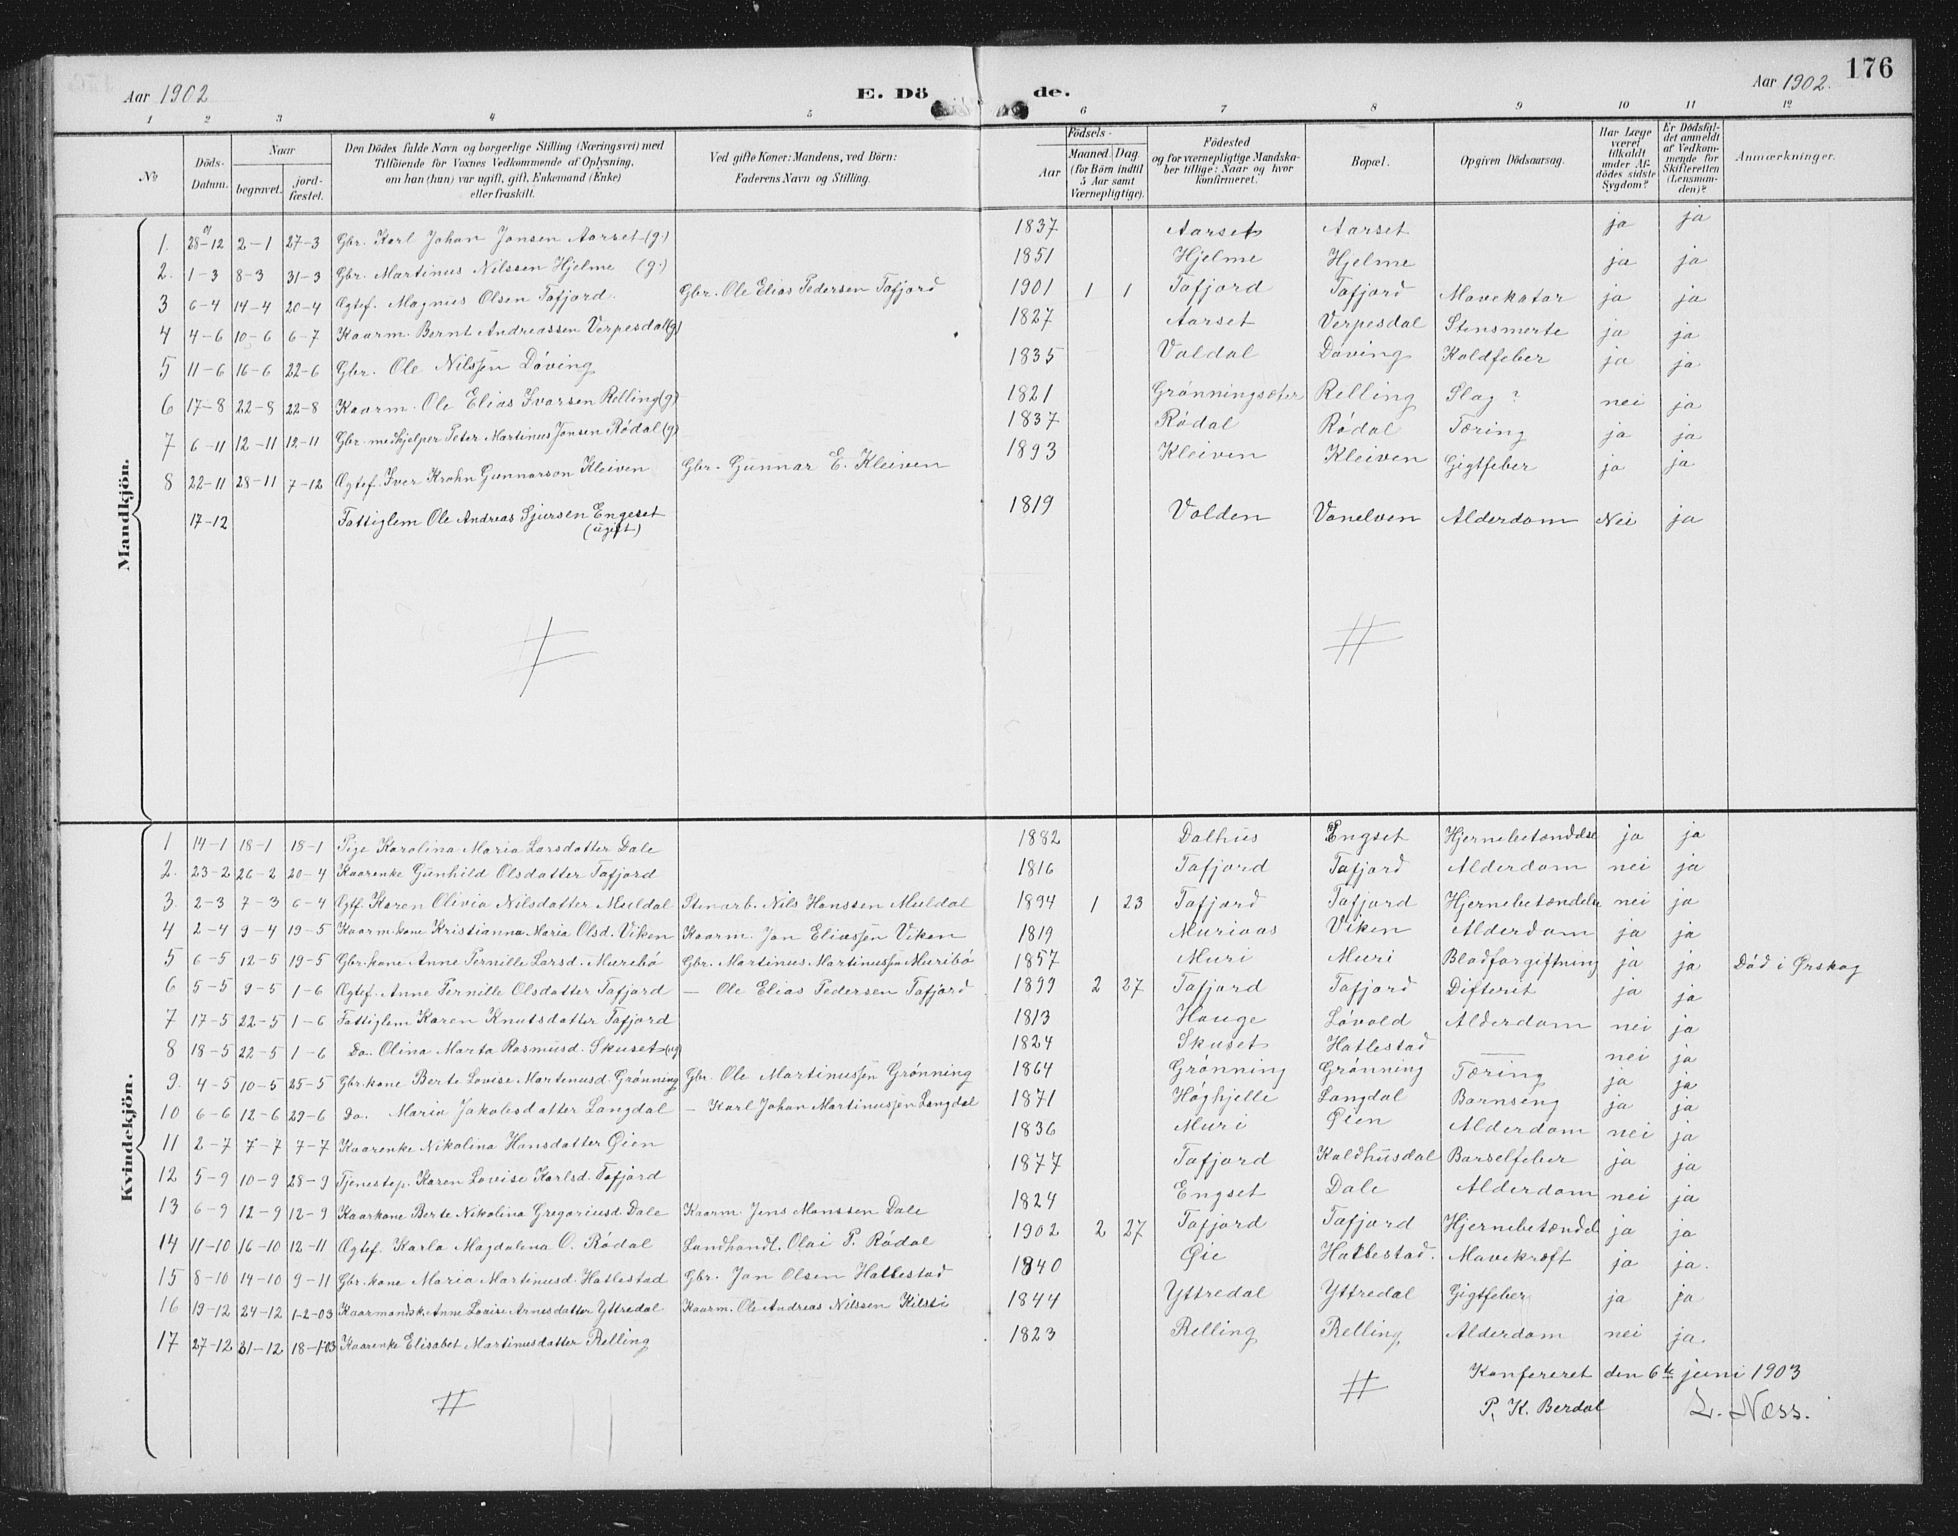 176
Aar 1902 E. Dö de. Aar 1902.
1 2 3 4 5 6 7 8 9 10 11 12
No Döds-Datum. Naar begravet. jord-fæstet. Den Dödes fulde Navn og borgerlige Stilling (Næringsvei) med Tilföiende for Voxnes Vedkommende af Oplysning, om han (hun) var ugift, gift, Enkemand (Enke) eller fraskilt. Ved gifte Koner: Mandens, ved Börn: Faderens Navn og Stilling. Födsels- Aar Maaned Dag (for Börn indtil 5 Aar samt Værnepligtige). Födested og for værnepligtige Mandskaber tillige: Naar og hvor konfirmeret. Bopæl. Opgiven Dödsaarsag. Har Læge været tilkaldt under Afdödes sidste Sygdom? Er Dödsfaldet anmeldt af Vedkommende for Skifteretten (Lensmanden)? Anmærkninger.
Mandkjön.
1. 28-12 2-1 27-3 Gbr. Karl Johan Jonsen Aarset (g.) 1837 Aarset Aarset ja ja
2. 1-3 8-3 31-3 Gbr. Martinus Nilssen Hjelme (g.) 1851 Hjelme Hjelme ja ja
3 6-4 14-4 20-4 Ægtef. Magnus Olsen Tafjord. Gbr. Ole Elias Pedersen Tafjord 1901 1 1 Tafjord Tafjord Mavekatar ja ja
4 4-6 10-6 6-7 Kaarm. Bernt Andreassen Verpesdal (g) 1827 Aarset Verpesdal Stensmerte ja ja
5 11-6 16-6 22-6 Gbr. Ole Nilssen Döving 1835 Valdal Döving Koldfeber ja ja
6 17-8 22-8 22-8 Kaarm. Ole Elias Ivarsen Relling (g) 1821 Grönningsæter Relling Slag? nei ja
7 6-11 12-11 12-11 Gbr. medhjelper Peter Martinus Jonsen Rödal (g) 1837 Rødal Rödal Tæring ja ja
8 22-11 28-11 7-12 Ægtef. Iver Krohn Gunnarson Kleiven Gbr. Gunnar E. Kleiven 1893 Kleiven Kleiven Gigtfeber ja ja
17-12 Fattiglem Ole Andreas Sjursen Engeset (ugift) 1819 Volden Vanelven Alderdom Nei ja
Kvindekjön.
1 14-1 18-1 18-1 Pige Karolina Maria Larsdatter Dale 1882 Dalhus Engset Hjernebetændelse ja ja
2. 23-2 26-2 20-4 Kaarenke Gunhild Olsdatter Tafjord 1816 Tafjord Tafjord Alderdom nei ja
3. 2-3 7-3 6-4 Ægtf Karen Olivia Nilsdatter Muldal Stenarb. Nils Hanssen Muldal 1894 1 23 Tafjord Tafjord Hjernebetændelse nei ja
4 2-4 9-4 19-5 Kaarm.kone Kristianna Maria Olsd. Viken Kaarm. Jon Eliassen Viken 1819 Muriaas Viken Alderdom ja ja
5 6-5 12-5 19-5 Gbr.kone Anne Pernille Larsd. Muribö Gbr. Martinus Martinussen Muribö 1857 Muri Muri Blodforgiftning ja ja Död i Ørskog
6 5-5 9-5 1-6 Ægtef. Anne Pernille Olsdatter Tafjord — Ole Elias Pedersen Tafjord 1899 2 27 Tafjord Tafjord Difterit ja ja
7 17-5 22-5 1-6 Fattiglem Karen Knutsdatter Tafjord 1813 Hauge Løvold Alderdom nei ja
8 18-5 22-5 1-6 Do. Olina Marta Rasmusd. Skuset (ug) 1824 Skuset Hatlestad — nei ja
9. 4-5 10-5 25-5 Gbr.kone Berte Lovise Martenusd. Grønning Gbr. Ole Martinussen Grønning 1864 Grønning Grønning Tæring ja ja
10 6-6 12-6 29-6 Do. Maria Jakobsdatter Langdal — Karl Johan Martinussen Langdal 1871 Høghjelle Langdal Barnseng ja ja
11 2-7 7-7 7-7 Kaarenke Nikolina Hansdatter Øien 1836 Muri Øien Alderdom nei ja
12 5-9 10-9 28-9 Tjenestep. Karen Lovise Karlsd. Tafjord 1877 Tafjord Kaldhusdal Barselfeber ja ja
13 6-9 12-9 12-9 Kaarkone Berte Nikolina Gregoriusd. Dale Kaarm. Jens Monssen Dale 1824 Engset Dale Alderdom nei ja
14 11-10 16-10 12-11 Ægtef. Karla Magdalena O. Rödal Landhandl. Olai P. Rödal 1902 2 27 Tafjord Tafjord Hjernebetændel ja ja
15 8-10 14-10 9-11 Gbr.kone Maria Martinusd. Hatlestad Gbr. Jon Olsen Hatlestad 1840 Øie Hatlestad. Mavekræft ja ja.
16 19-12 24-12 1-2-03 Kaarmandsk. Anne Lovise Arnesdatter Yttredal Kaarm. Ole Andreas Nilssen Kilsti 1844 Yttredal Yttredal Gigtfeber ja ja
17 27-12 31-12 18-1-03 Kaarenke Elisabet Martinusdatter Relling 1823 Relling Relling Alderdom nei ja.
Konfereret den 6te juni 1903
P. K. Berdal L. Næss.